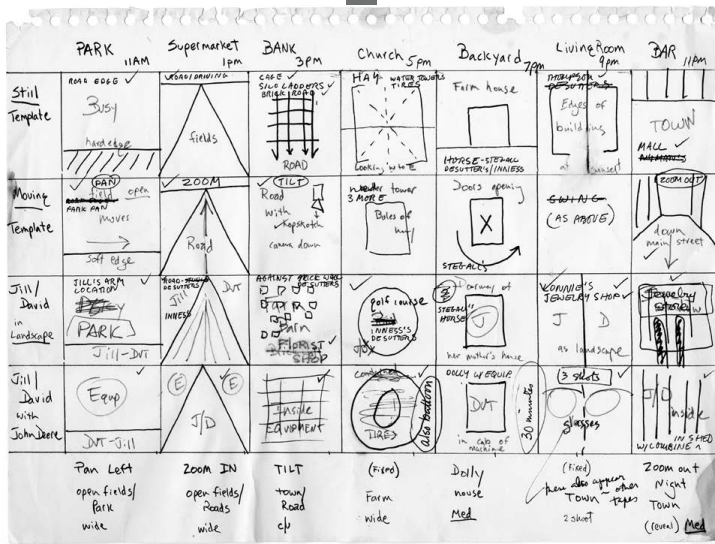 PARK
11AM
Supermarket
1pm
BANK
3pm
Church
5pm
Backyard
7pm
Living Room
9pm
BAR
11pm
Still
Template
ROAD EDGE
Busy
hard edge
ROAD/DRIVING
fields
CAGE
SILO LADDERS
BRICK ROAD
ROAD
HAY
WATER TOWERS
TIRES
Looking into E
Farm house
HORSE-STEGALL
DESUTTER'S/INNESS
DESUTTERS
Edges of
building
at sunset
TOWN
MALL
Moving
Template
PAN
field open
PARK PAN
moves
soft edge
ZOOM
Road
TILT
Road
with
Hopskotch
camera down
Weather tower
3 MORE
Bales of
hay
Doors opening
X
STEGALL'S
SWING
(AS ABOVE)
ZOOM OUT
down
main street
Jill/
David
in
Landscape
JILL'S ARM
LOCATION
PARK
Jill-DVT
ROAD
DESUTTERS
Jill
DVT
INNESS
AGAINST BRICK WALL
DESUTTERS
Barn
FLORIST
SHOP
golf course
INNESS'S
DESUTTERS
Doorway of
STEGALL'S
HORSE
J
her mother's house
KONNIE'S
JEWELRY SHOP
J D
as landscape
Jewelry
Jill/
David
with
John Deere
Equip
DVT-Jill
E E
J/D
Inside
EQUIPMENT
TIRES
also balloon
DOLLY W/EQUIP.
DVT
in cab of
machine
30 minutes
3 shots
glasses
J/D
inside
IN SHED
W/COMBINE
Pan Left
open fields/
Park
wide
ZOOM IN
open fields/
Roads
wide
TILT
town/
Road
c/u
(Fixed)
Farm
wide
Dolly
house
Med
(fixed)
here also appear
Town ~ other
tapes
2 shoot
Zoom out
Night
Town
(reveal) Med